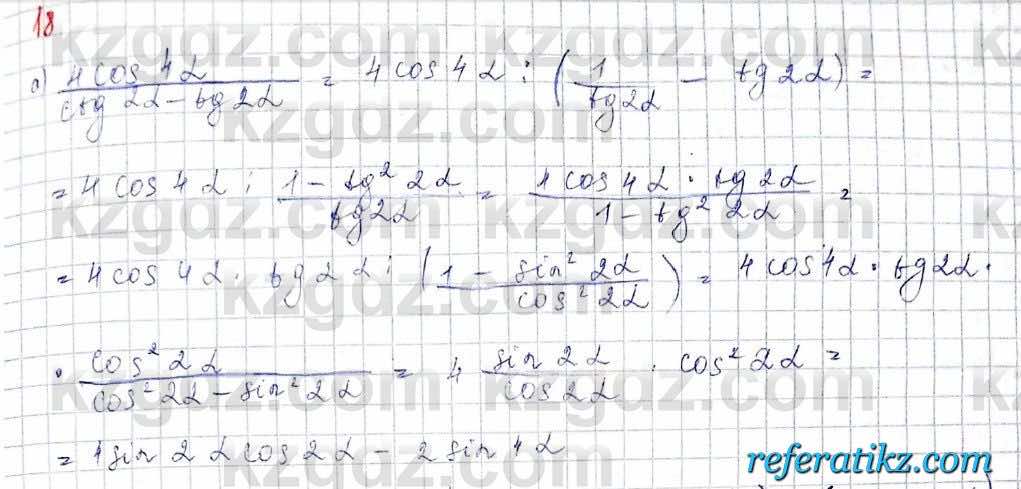 18.
а) 4 cos 4α / (ctg 2α − tg 2α) = 4 cos 4α : (1 / tg 2α − tg 2α) =
= 4 cos 4α : (1 − tg² 2α) / tg 2α = 4 cos 4α · tg 2α / (1 − tg² 2α) =
= 4 cos 4α · tg 2α : (1 − sin² 2α / cos² 2α) = 4 cos 4α · tg 2α ·
· cos² 2α / (cos² 2α − sin² 2α) = 4 sin 2α / cos 2α · cos² 2α =
= 4 sin 2α cos 2α − 2 sin 4α
kzgdz.com
referatikz.com